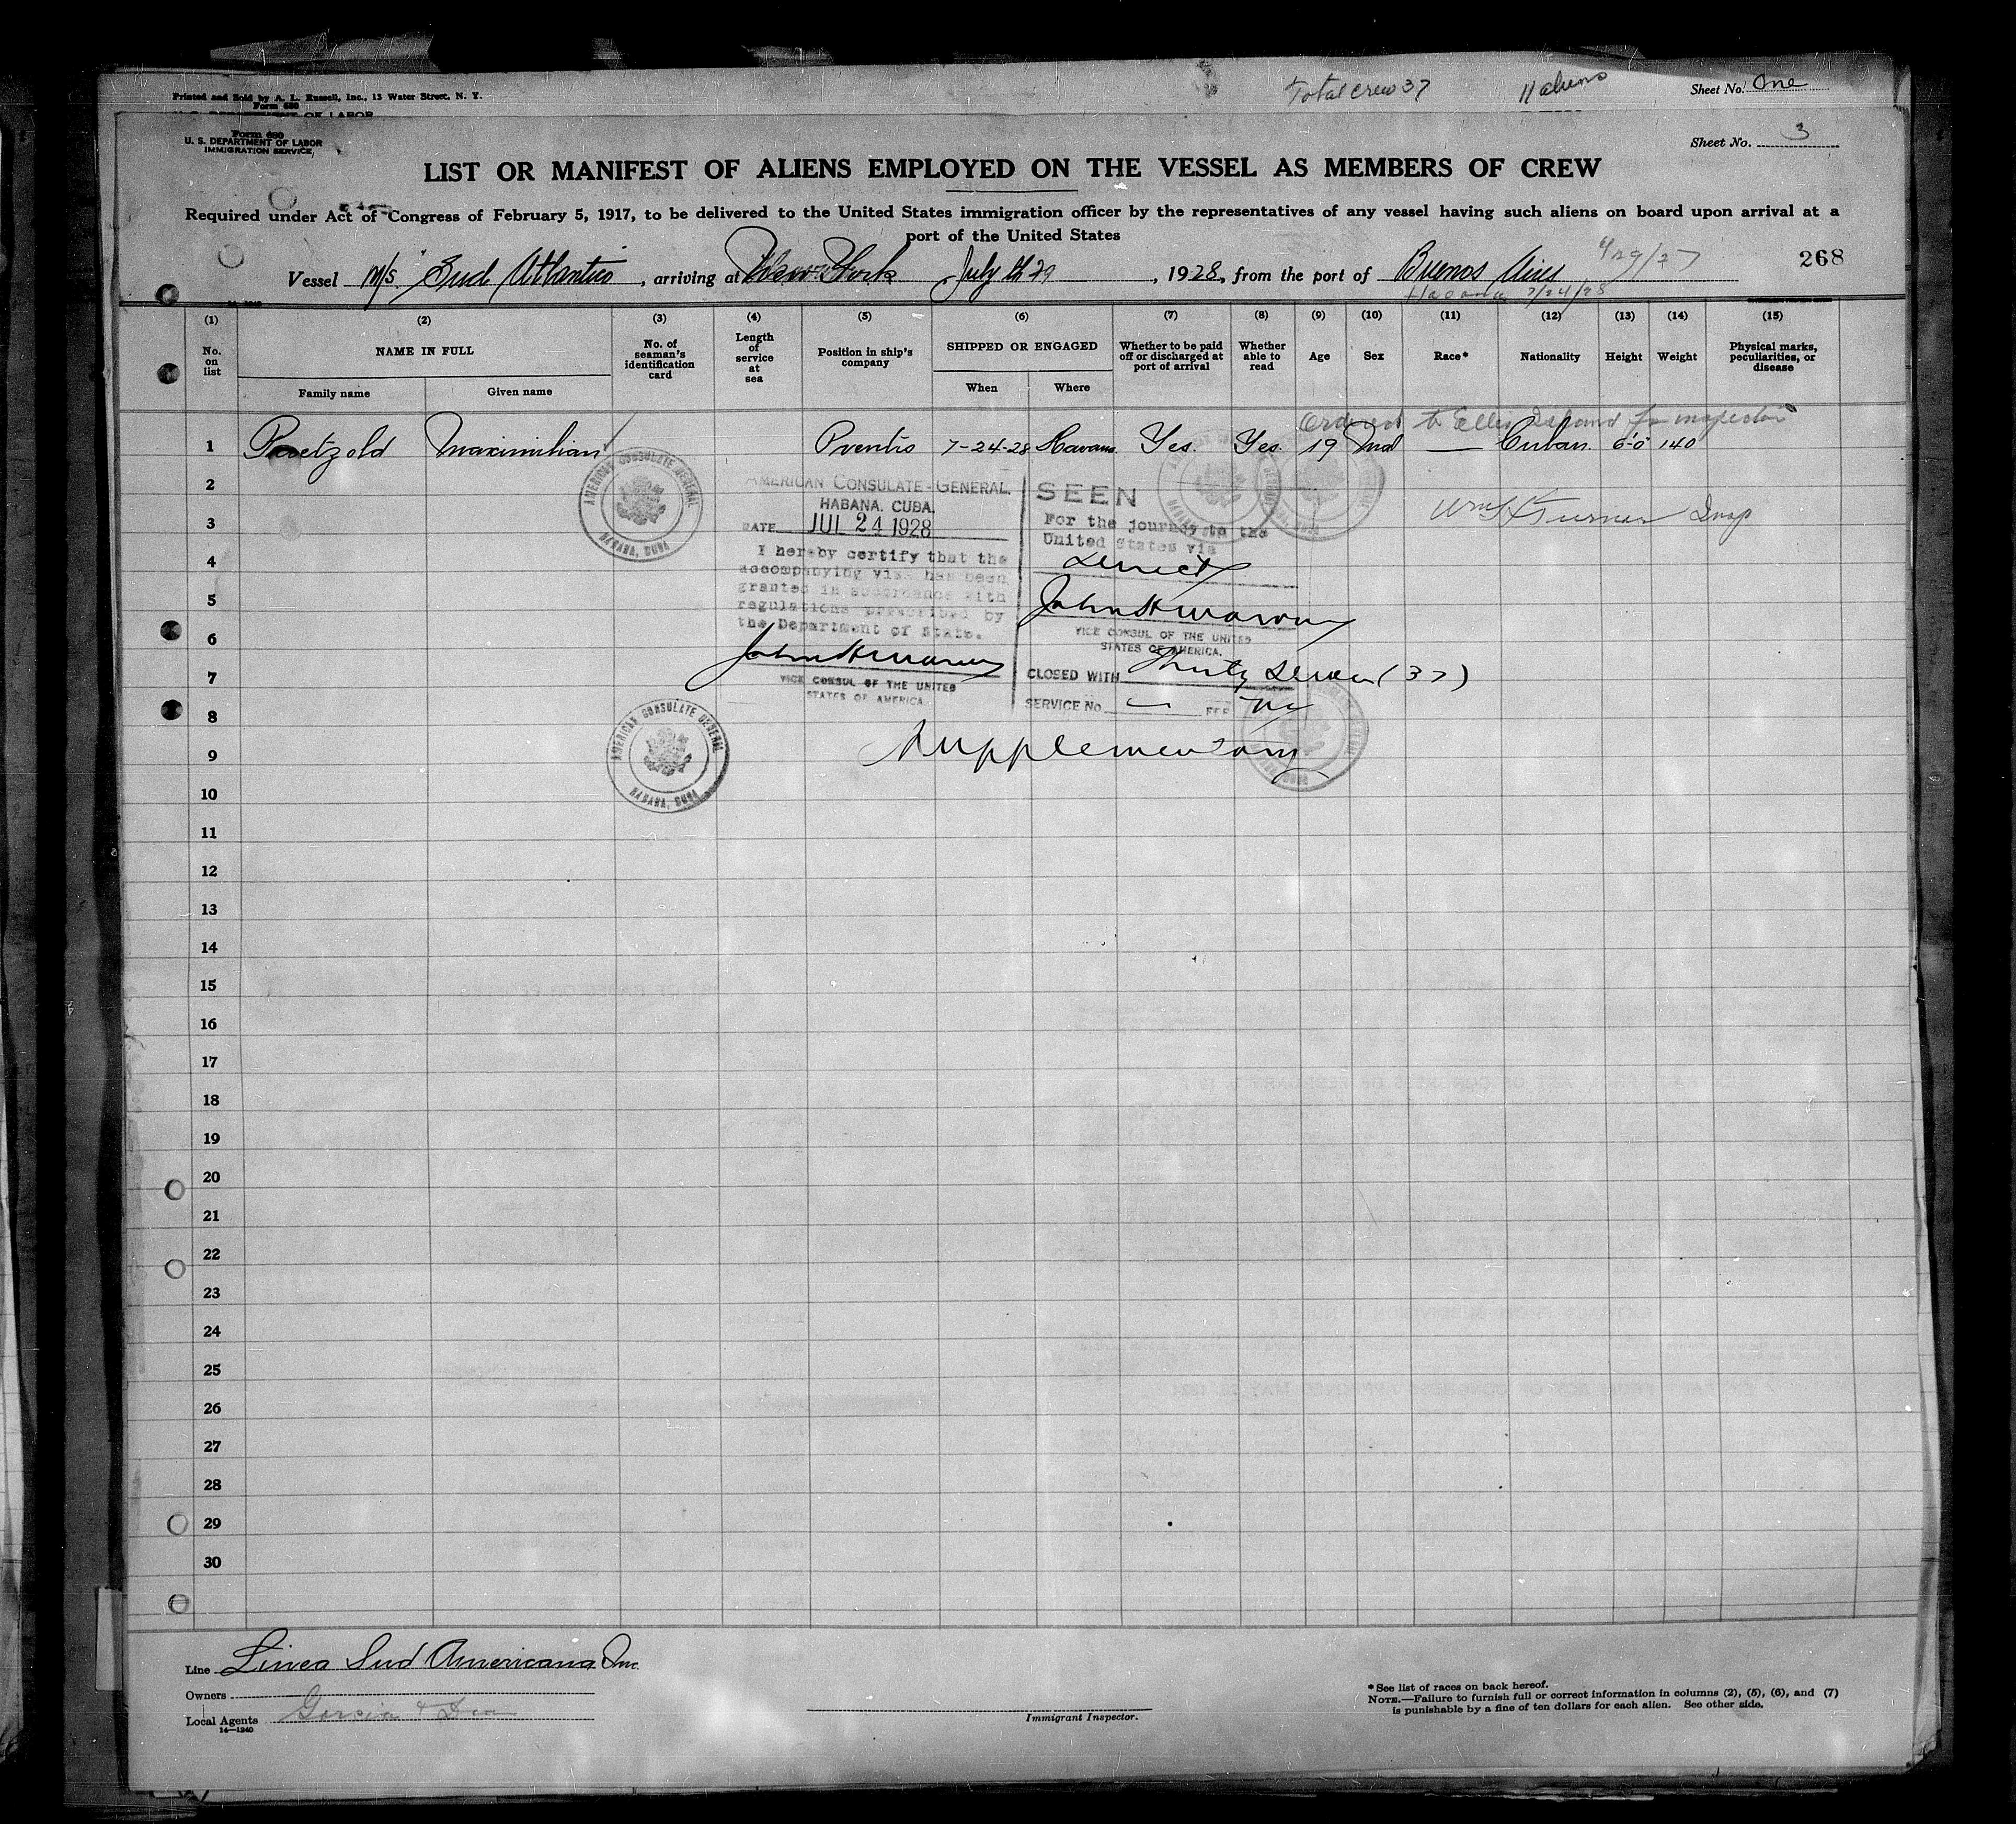 Printed and Sold by A. L. Russell, Inc., 13 Water Street, N. Y.
Form 680
U. S. DEPARTMENT OF LABOR
Total crew 37
11 aliens
Sheet No. One
Form 680
U. S. DEPARTMENT OF LABOR
IMMIGRATION SERVICE
Sheet No. 3
LIST OR MANIFEST OF ALIENS EMPLOYED ON THE VESSEL AS MEMBERS OF CREW
Required under Act of Congress of February 5, 1917, to be delivered to the United States immigration officer by the representatives of any vessel having such aliens on board upon arrival at a
port of the United States
Vessel M/s "Sud Atlantico, arriving at New York July 29, 1928, from the port of Buenos Aires 6/29/27
268
Habana 7/24/28
14-1240
(1) (2) (3) (4) (5) (6) (7) (8) (9) (10) (11) (12) (13) (14) (15)
No. on list
NAME IN FULL
Family name
Given name
No. of seaman's identification card
Length of service at sea
Position in ship's company
SHIPPED OR ENGAGED
When
Where
Whether to be paid off or discharged at port of arrival
Whether able to read
Age
Sex
Race*
Nationality
Height
Weight
Physical marks, peculiarities, or disease
Ordered to Ellis Island for inspection
1 Paetzold Maximilian 7-24-28 Havana Yes. Yes. 19 — Cuban. 6'0" 140
2
3
4
5
6
7
8
9
10
11
12
13
14
15
16
17
18
19
20
21
22
23
24
25
26
27
28
29
30
Wm H Turner Insp
AMERICAN CONSULATE GENERAL
HABANA, CUBA
AMERICAN CONSULATE-GENERAL.
HABANA. CUBA.
DATE JUL 24 1928
I hereby certify that the
accompanying visa has been
granted in accordance with
regulations prescribed by
the Department of State.
VICE CONSUL OF THE UNITED
STATES OF AMERICA
SEEN
For the journey to the
United States via
Direct
VICE CONSUL OF THE UNITED
STATES OF AMERICA.
CLOSED WITH Thirty Seven (37)
SERVICE No. — FEE No
AMERICAN CONSULATE GENERAL
HABANA, CUBA
Supplementary
Line Linea Sud Americana Inc.
Owners
Local Agents Garcia & Diaz
14-1240
Immigrant Inspector.
*See list of races on back hereof.
NOTE.—Failure to furnish full or correct information in columns (2), (5), (6), and (7)
is punishable by a fine of ten dollars for each alien. See other side.